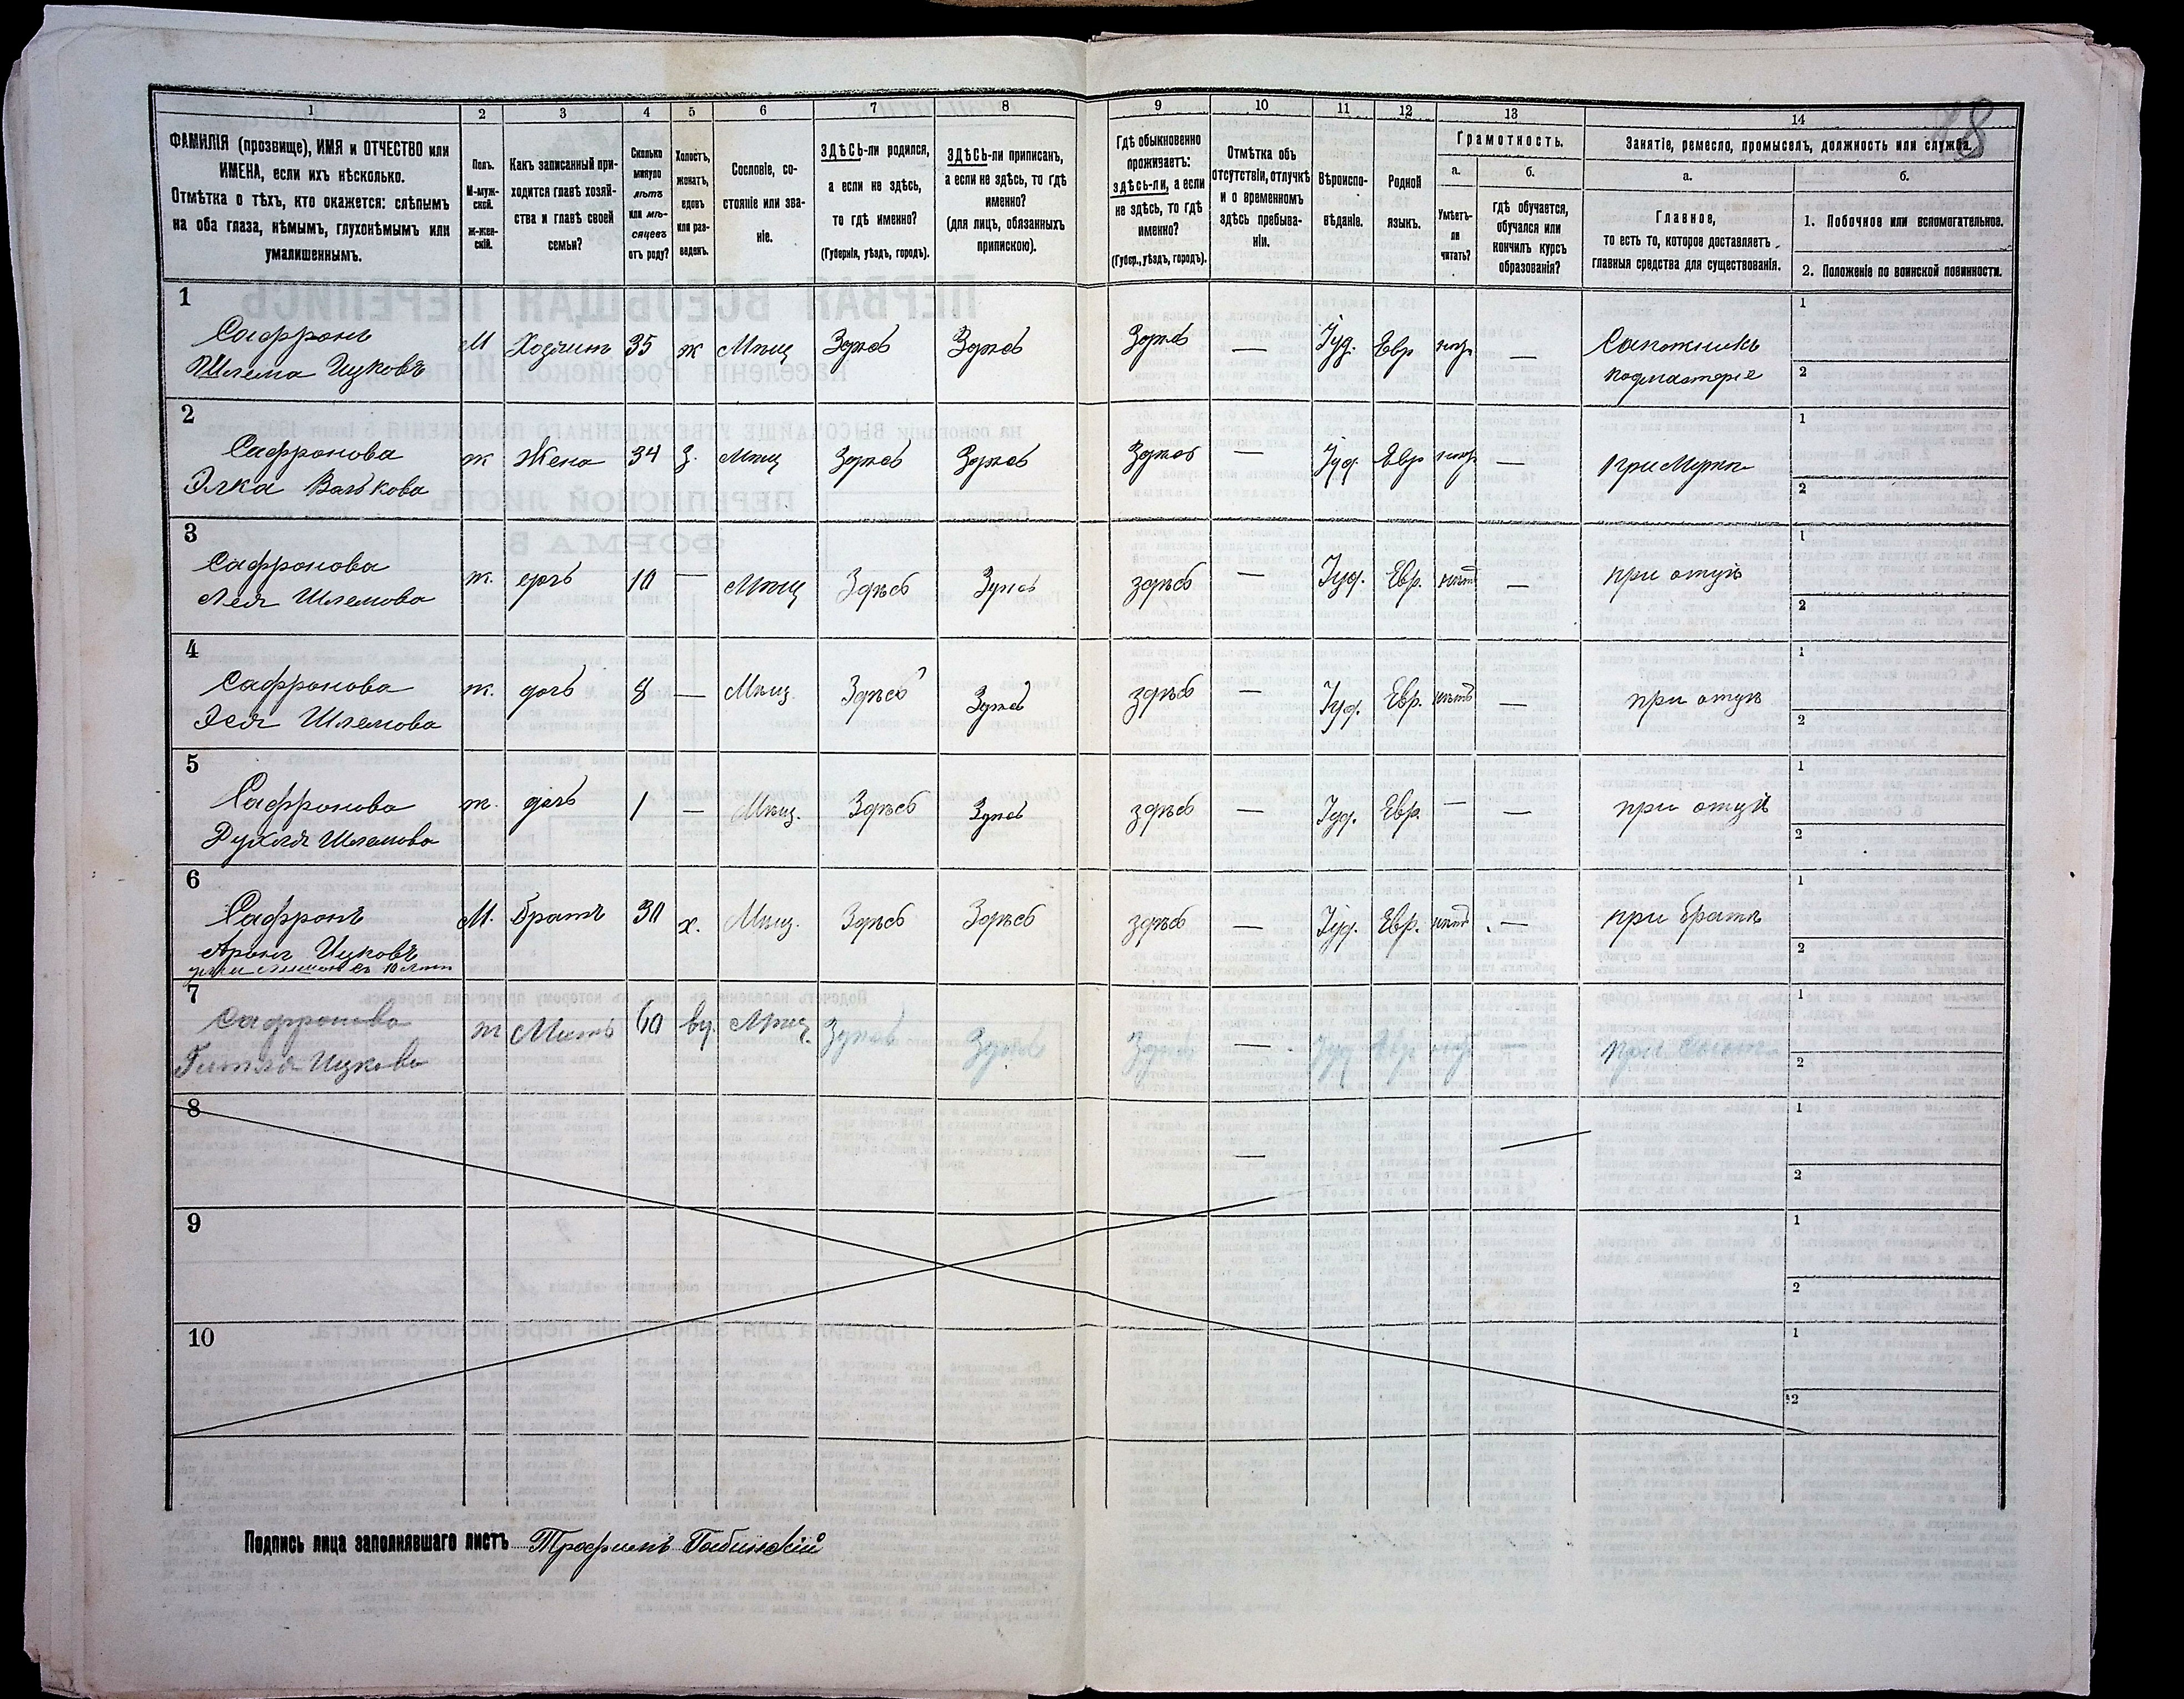 1 2 3 4 5 6 7 8 9 10 11 12 13 14
18
ФАМИЛІЯ (прозвище), ИМЯ и ОТЧЕСТВО или
ИМЕНА, если ихъ нѣсколько.
Отмѣтка о тѣхъ, кто окажется: слѣпымъ
на оба глаза, нѣмымъ, глухонѣмымъ или
умалишеннымъ.
Полъ.
М-муж-
ской.
Ж-жен-
скій.
Какъ записанный при-
ходится главѣ хозяй-
ства и главѣ своей
семьи?
Сколько
минуло
лѣтъ
или мѣ-
сяцевъ
отъ роду?
Холостъ,
женатъ,
вдовъ
или раз-
веденъ.
Сословіе, со-
стояніе или зва-
ніе.
ЗДѢСЬ-ли родился,
а если не здѣсь,
то гдѣ именно?
(Губернія, уѣздъ, городъ).
ЗДѢСЬ-ли приписанъ,
а если не здѣсь, то гдѣ
именно?
(для лицъ, обязанныхъ
припискою).
Гдѣ обыкновенно
проживаетъ:
здѣсь-ли, а если
не здѣсь, то гдѣ
именно?
(Губер., уѣздъ, городъ).
Отмѣтка объ
отсутствіи, отлучкѣ
и о временномъ
здѣсь пребыва-
ніи.
Вѣроиспо-
вѣданіе.
Родной
языкъ.
Грамотность.
а.
Умѣетъ-
ли
читать?
б.
Гдѣ обучается,
обучался или
кончилъ курсъ
образованія?
Занятіе, ремесло, промыселъ, должность или служба.
а.
Главное,
то есть то, которое доставляетъ
главныя средства для существованія.
б.
1. Побочное или вспомогательное.
2. Положеніе по воинской повинности.
1
Сафронъ
Шлема Ицковъ
М Хозяинъ 35 ж Мѣщ Здѣсь Здѣсь Здѣсь — Іуд. Евр —
Сапожникъ
подмастерье
1
2
2
Сафронова
Элка Васькова
ж Жена 34 З. Мѣщ Здѣсь Здѣсь Здѣсь — Іуд. Евр —
при Мужѣ
1
2
3
Сафронова
Лея Шлемова
ж. дочь 10 — Мѣщ Здѣсь Здѣсь здѣсь — Іуд. Евр. нѣтъ — при отцѣ
1
2
4
Сафронова
Шлемова
ж. дочь 8 — Мѣщ. Здѣсь Здѣсь здѣсь — Іуд. Евр. нѣтъ — при отцѣ
1
2
5
Сафронова
Шлемова
ж. дочь 1 — Мѣщ. Здѣсь Здѣсь здѣсь — Іуд. Евр. — — при отцѣ
1
2
6
Сафронъ
Аронъ Ицковъ
съ 10 лѣтъ
М. Братъ 30 х. Мѣщ. Здѣсь Здѣсь здѣсь — Іуд. Евр. нѣтъ — при братѣ
1
2
7
Сафронова
Гитля Ицкова
ж Мать 60 вд. Мѣщ. Здѣсь Здѣсь Здѣсь — Іуд Евр — при сынѣ
1
2
8
—
1
2
9
1
2
10
1
2
Подпись лица заполнявшаго листъ